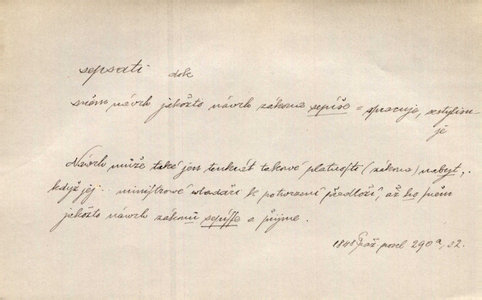 sepsati dok
sněm návrh jakožto návrh zákona sepíše = spracuje, zestylisu-
je
Návrh může také jen tenkrát takové platnosti (zákona) nabyt,
když jej ministrové vladaři k potvrzení předloží, až ho sněm
jakožto návrh zákonů sepíše a přijme.
1848 posl 290a, s2.